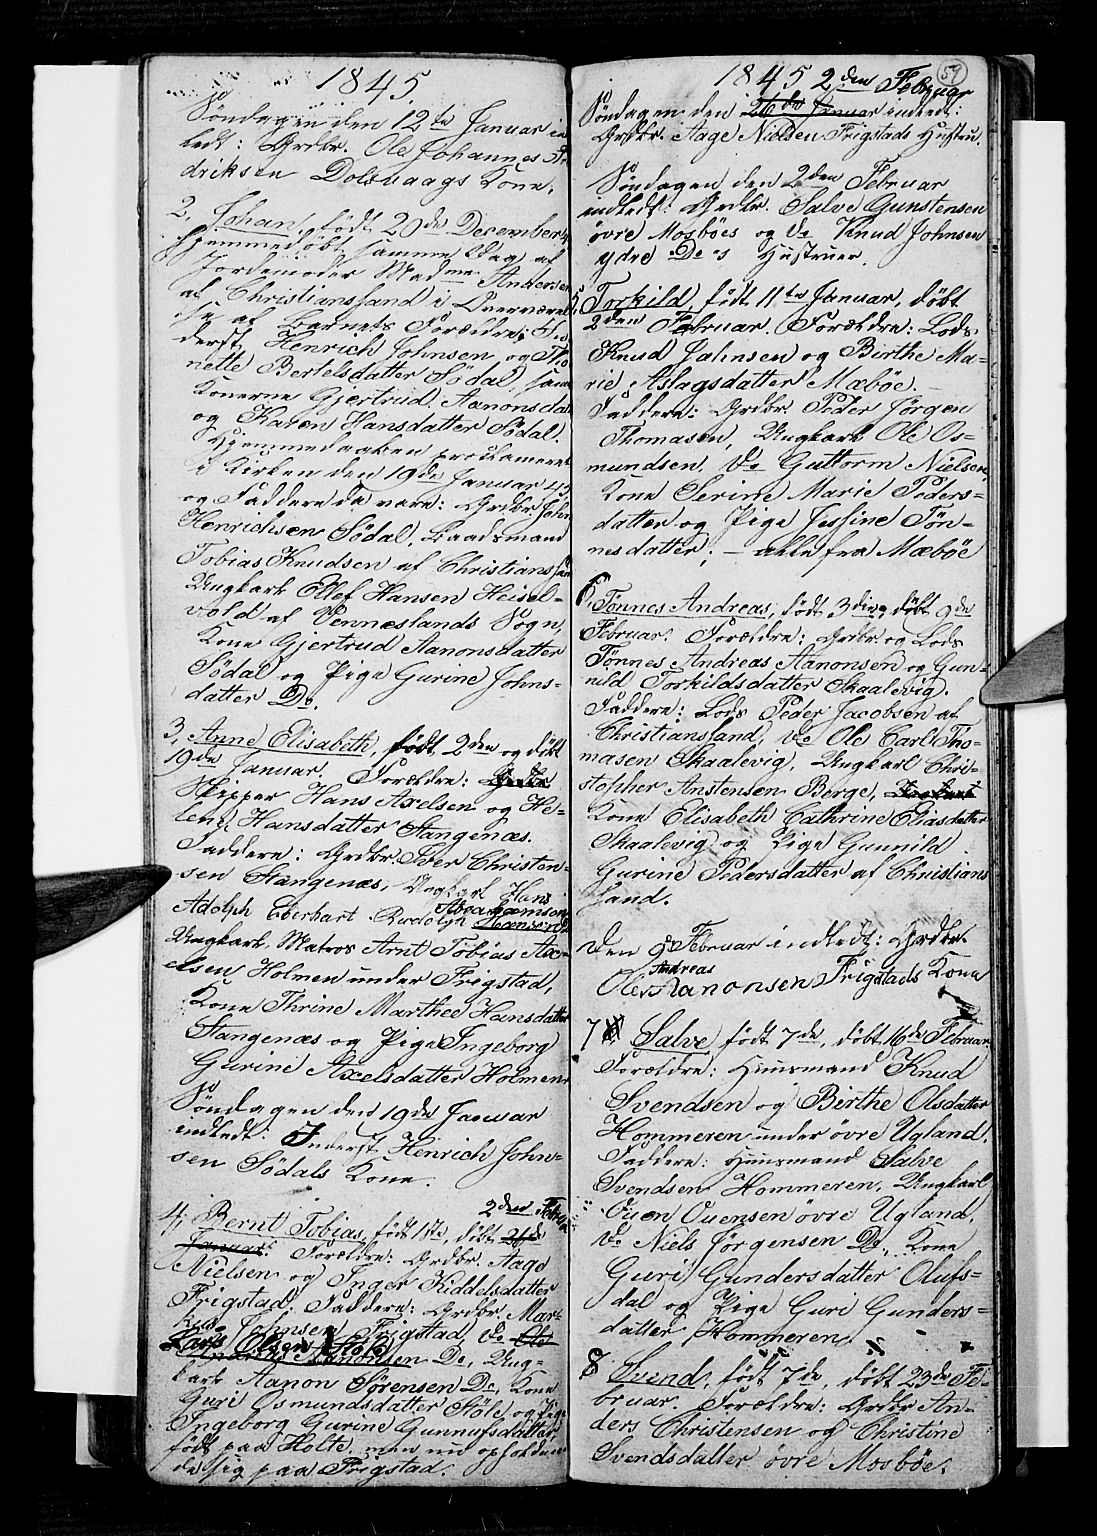 1845.
Søndagen den 12te Januar in
ledt: Grdbr. Ole Johannes
driksen Dolsvaags Kone.
2, Johan, født 20de December
hjemmedøbt samme Dag af
Jordemoder Madme Andersen
af Christianssand i Overværel
se af Barnets Forældre: In
derst Henrich Johnsen og Tho
nette Bertelsdatter Södal, samt
Konerne Gjertrud Aanonsdatt
og Karen Hansdatter Södal.
Hjemmedaaben proclameret
i Kirken den 19de Januar 45
og Faddere da vare: Grdbr John
Henrichsen Södal, Baadsmand
Tobias Knudsen af Christianssan
Ungkarl Ellef Hansen Heisel-
vold af Venneslands Sogn,
Kone Gjertrud Aanonsdatter
Södal og Pige Gurine Johns-
datter Do.
3, Anne Elisabeth, født 2den og døbt
19de Januar. Forældre:
Skipper Hans Axelsen og He-
lene Hansdatter Stangenæs.
Faddere: Grdbr. Peer Christen-
sen Stangenæs, Ungkarl Hans
Adolph Eberhart Rudolph Abrahamson
Ungkarl Matros Arnt Tobias Ax-
elsen Holmen under Frigstad,
Kone Thrine Marthee Hansdatter
Stangenæs og Pige Ingeborg
Gurine Axelsdatter Holmen.
Søndagen den 19de Januar
indledt: Inderst Henrich John-
sen Södals Kone.
2den Februar
4, Bernt Tobias, født 1ste, døbt 26de
Januar. Forældre: Grdbr. Aage
Nielsen og Inger Kiddelsdatter
Frigstad. Faddere: Grdbr. Mar-
kus Johnsen Frigstad, do Ole
Lars Olsen Støle
Andreas Aanonsen Do, Ung-
karl Aanon Sørensen Do, Kone
Guri Osmundsdatter Støle, og Pige
Ingeborg Gurine Gunnufsdatter,
født paa Holte, men nu opholden
de sig paa Frigstad.
59
1845 2den Februar
Søndagen den 26de Januar indledt:
Grdbr. Aage Nielsen Frigstads Hustru.
Søndagen den 2den Februar
indledt: Grdbr. Salve Gunstensen
øvre Mosbøes og do Knud Johnsen
ydre Do's Hustruer.
5, Torkild, født 11te Januar, døbt
2den Februar. Forældre: Lods
Knud Jahnsen og Birthe Ma-
rie Aslagsdatter Mæbøe. –
Faddere: Grdbr. Peder Jørgen
Thomasen, Ungkarl Ole Os-
mundsen, do Guttorm Nielsen,
Kone Serine Marie Peders-
datter og Pige Jessine Tön-
nesdatter, – alle fra Mæbøe
6, Tønnes Andreas, født 3die, døbt 9de
Februar. Forældre: Grdbr. og Lods
Tønnes Andreas Aanonsen og Gun-
nild Torkildsdatter Skaalevig.
Faddere: Lods Peder Jacobsen af
Christianssand, do Ole Carl Tho-
masen Skaalevig, Ungkarl Chri-
stopher Anstensen Berge,
Kone Elisabeth Cathrine Eliasdatter
Skaalevig og Pige Gunnild
Gurine Pedersdatter af Christians
sand.
Den 9de Februar indledt: Grdbr.
Andreas
Ole Aanonsen Frigstads Kone
7 Salve født 7de, døbt 16de Februar
Forældre: Huusmand Knud
Svendsen og Birthe Olsdatter
Hommeren under øvre Ugland.
Faddere: Huusmand Salve
Svendsen Hommeren, Ungkarl
Ouen Ouensen øvre Ugland,
do Niels Jørgensen Do, Kone
Guri Gundersdatter Olufs-
dal og Pige Guri Gunders-
datter Hommeren
8 Svend, født 7de, døbt 23de Fe-
bruar. Forældre: Grdbr An-
ders Christensen og Christine
Svendsdatter øvre Mosbøe.